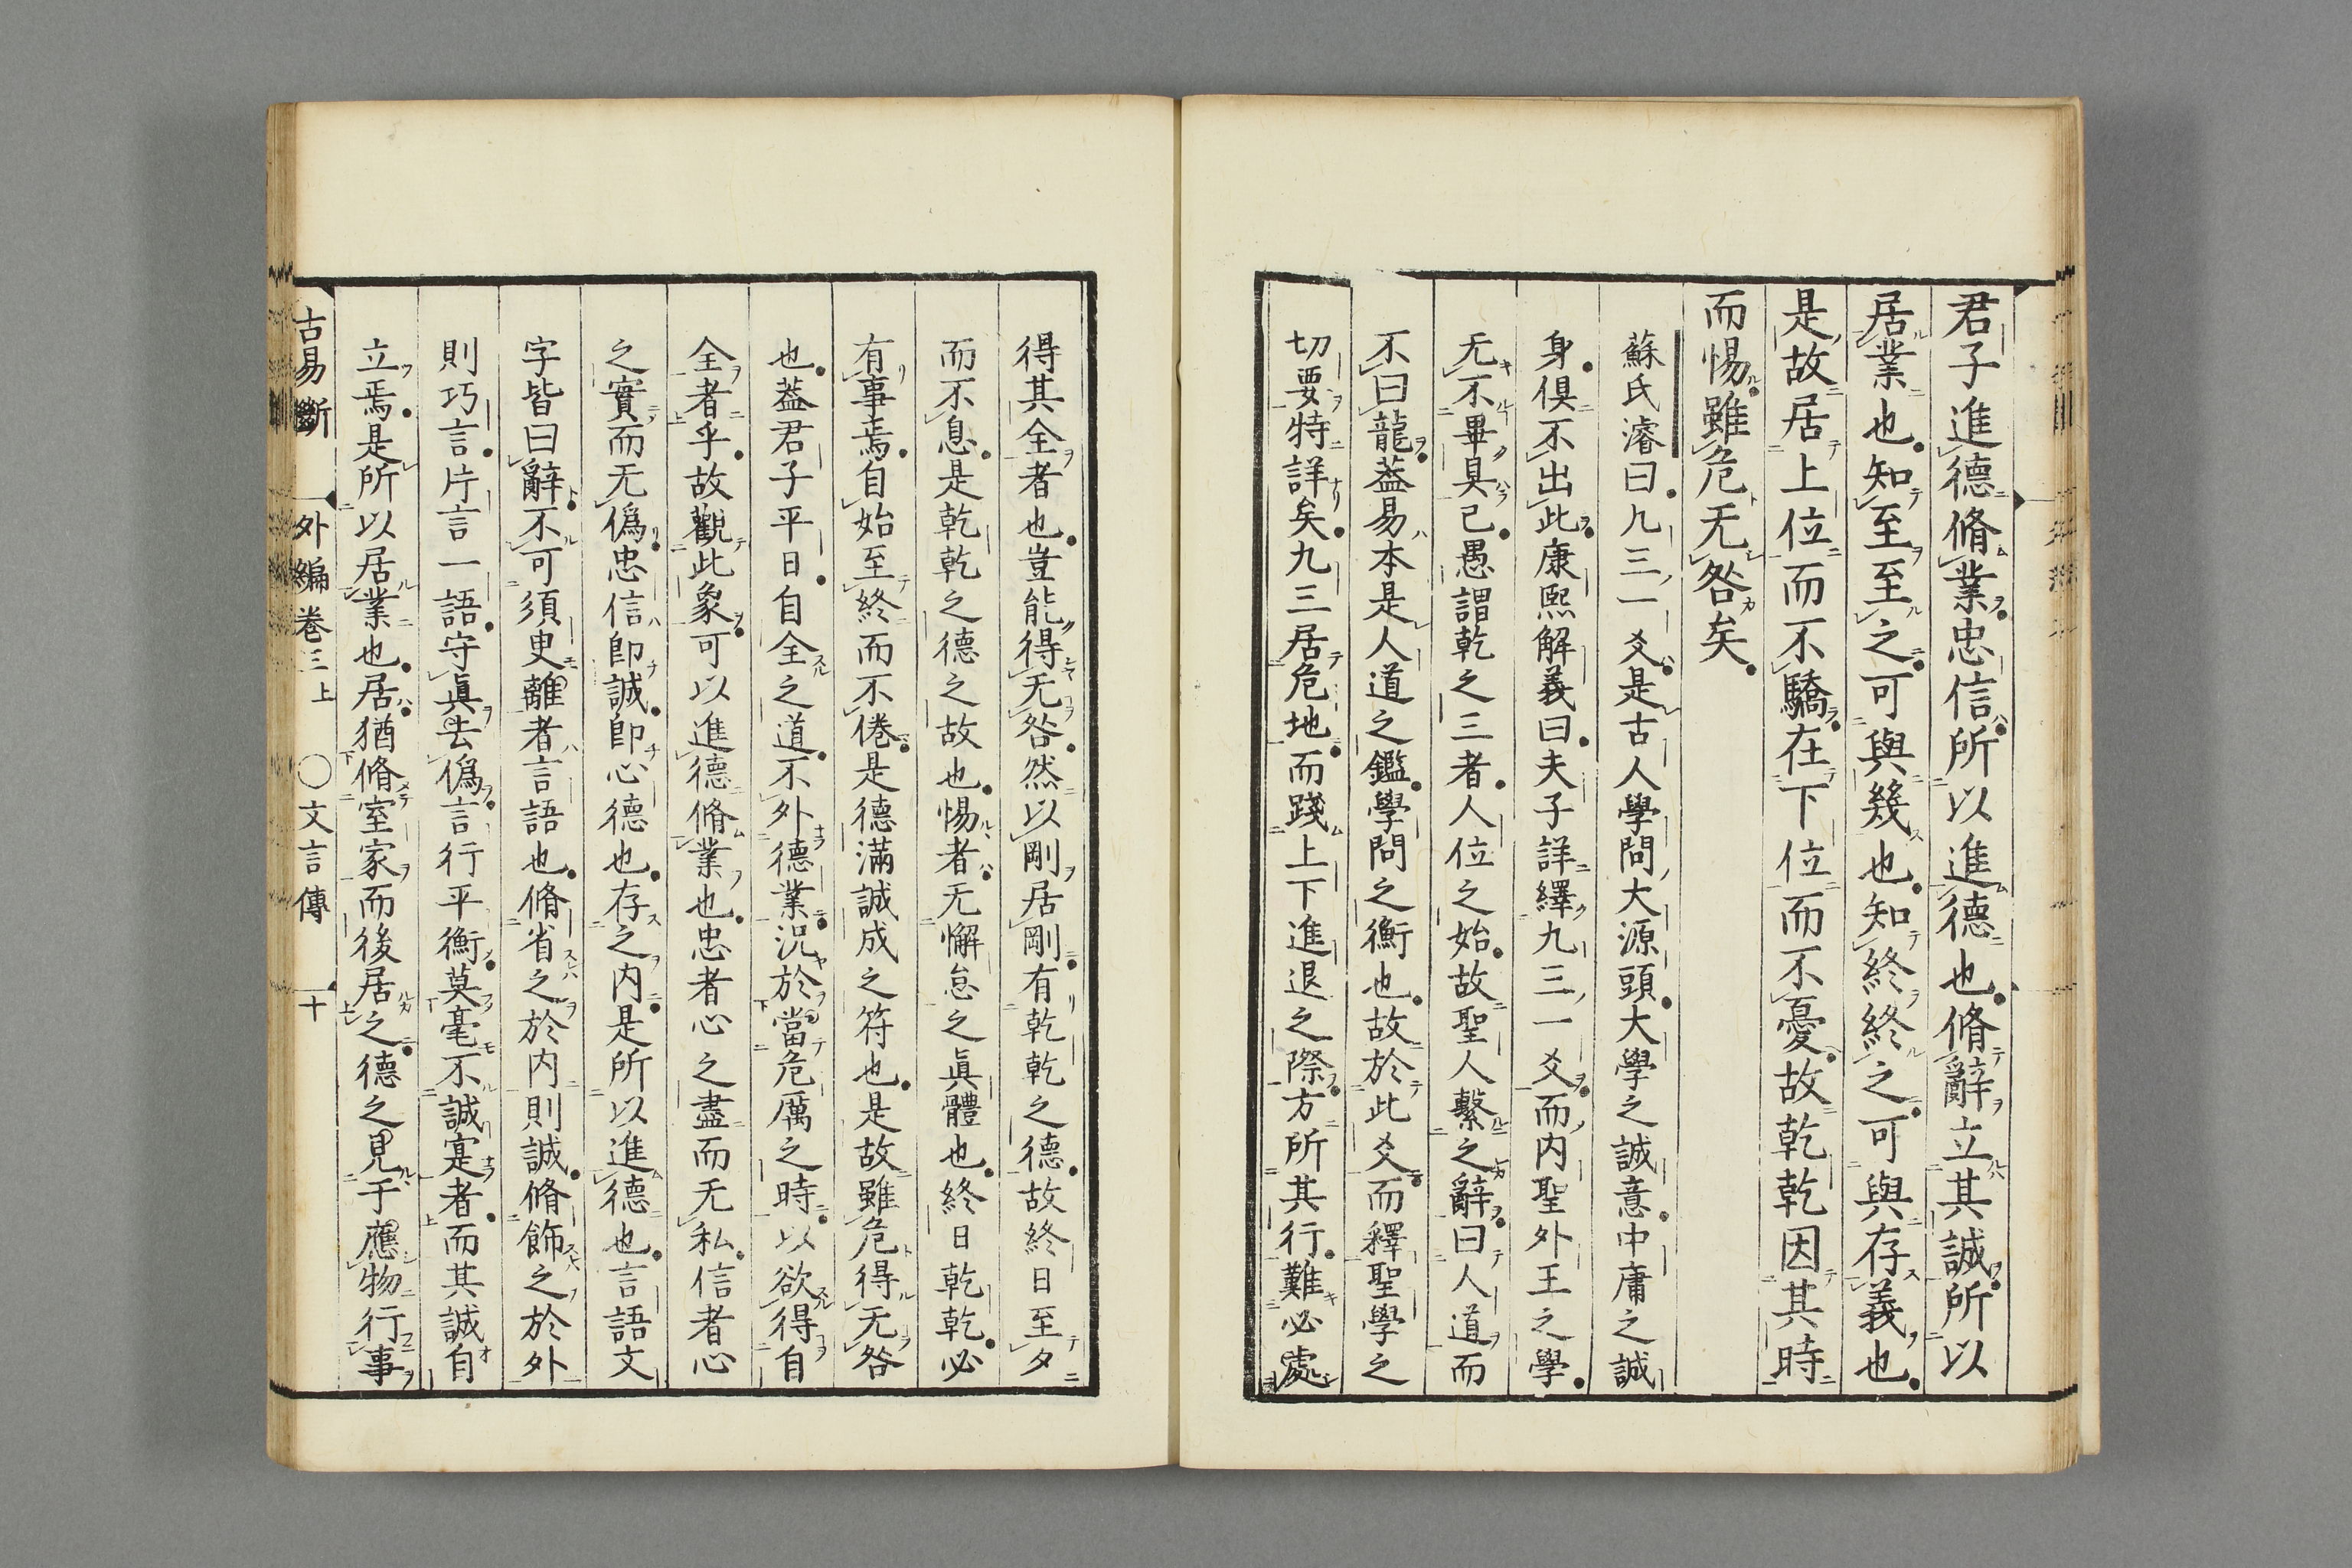 君子進德脩業忠信所以進德也脩辭立其誠所以
居業也知至至之可與幾也知終終之可與存義也
是故居上位而不驕在下位而不憂故乾乾因其時
而惕雖危无咎矣
蘇氏濬曰九三一爻是古人學問大源頭大學之誠意中庸之誠
身俱不出此康熙解義曰夫子詳繹九三一爻而内聖外王之學
无不畢具己愚謂乾之三者人位之始故聖人繫之辭曰人道而
不曰龍葢易本是人道之鑑學問之衡也故於此爻而釋聖學之
切要特詳矣九三居危地而踐上下進退之際方所其行難必處
得其全者也豈能得无咎然以剛居剛有乾乾之德故終日至夕
而不息是乾乾之德之故也惕者无懈怠之眞體也終日乾乾必
有事焉自始至終而不倦是德滿誠成之符也是故雖危得无咎
也葢君子平日自全之道不外德業況於當危厲之時以欲得自
全者乎故觀此象可以進德脩業也忠者心之盡而无私信者心
之實而无僞忠信卽誠卽心德也存之内是所以進德也言語文
字皆曰辭不可須臾離者言語也脩省之於内則誠脩飾之於外
則巧言片言一語守眞去僞言行平衡莫毫不誠寔者而其誠自
立焉是所以居業也居猶脩室家而後居之德之見于應物行事
古易斷 外編卷三上 〇文言傳 十